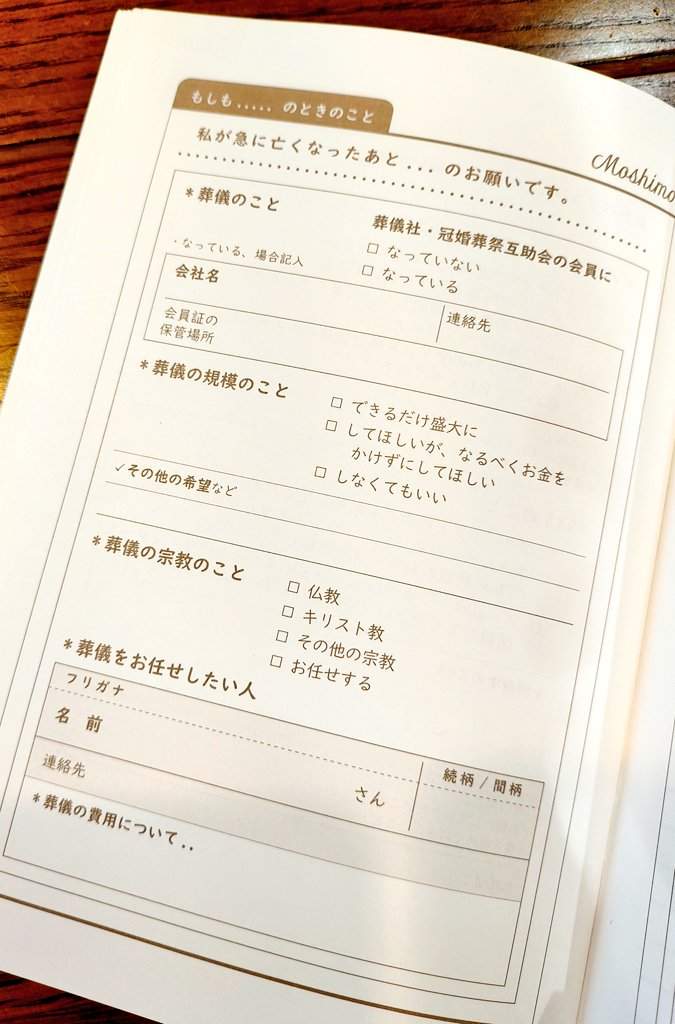 もしも..... のときのこと
Moshimo
私が急に亡くなったあと... のお願いです。
*葬儀のこと
葬儀社・冠婚葬祭互助会の会員に
□ なっていない
□ なっている
・なっている、場合記入
会社名
連絡先
会員証の
保管場所
*葬儀の規模のこと
□ できるだけ盛大に
□ してほしいが、なるべくお金を
かけずにしてほしい
□ しなくてもいい
✓その他の希望など
*葬儀の宗教のこと
□ 仏教
□ キリスト教
□ その他の宗教
□ お任せする
*葬儀をお任せしたい人
フリガナ
名 前
さん
続柄 / 間柄
連絡先
*葬儀の費用について..